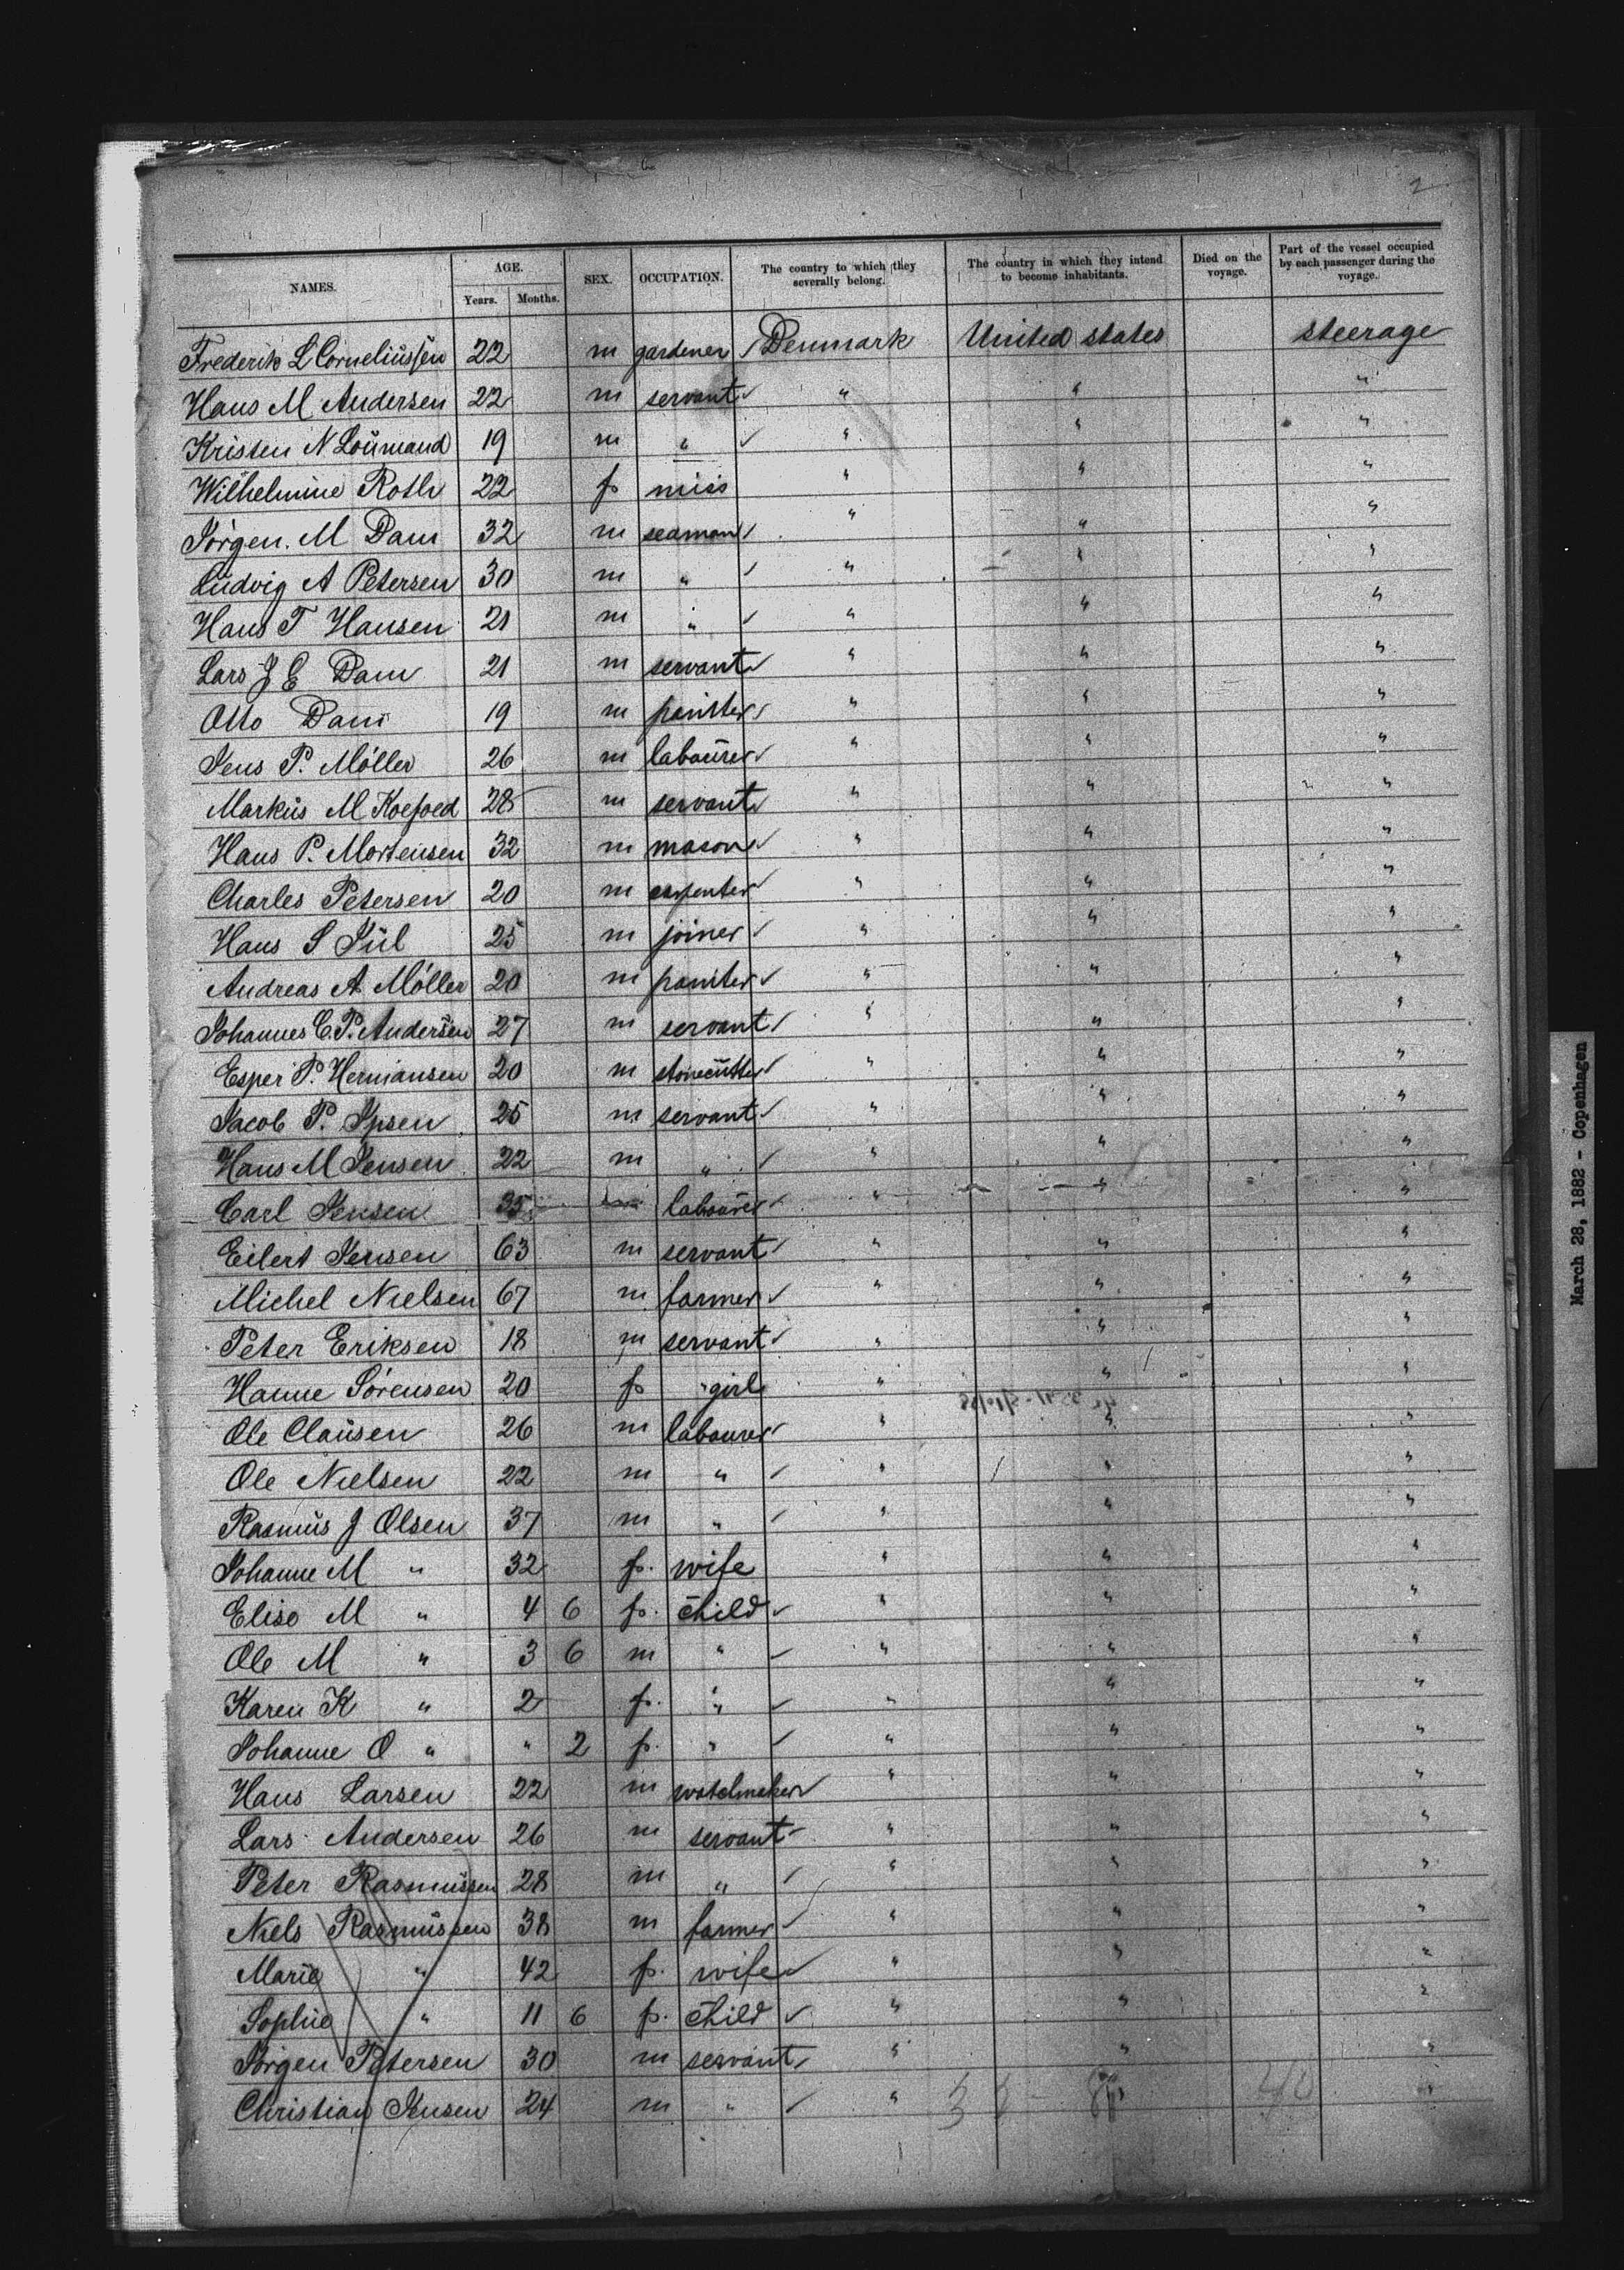 2
NAMES. AGE. Years. Months. SEX. OCCUPATION. The country to which they severally belong. The country in which they intend to become inhabitants. Died on the voyage. Part of the vessel occupied by each passenger during the voyage.
Frederik L Corneliussen 22 m gardener Denmark United states steerage
Hans M Andersen 22 m servant " " "
Kristen N 19 m " " " "
Wilhelmine Roth 22 f miss " " "
Jörgen. M Dam 32 m seaman " " "
Ludvig A Petersen 30 m " " " "
Hans T Hansen 21 m " " " "
Lars J E Dam 21 m servant " " "
Otto Dam 19 m painter " " "
Jens P. Möller 26 m labourer " " "
Markus M Koefoed 28 m servant " " "
Hans P. Mortensen 32 m mason " " "
Charles Petersen 20 m carpenter " " "
Hans S Jül 25 m joiner " " "
Andreas A Möller 20 m painter " " "
Johannes C. P. Andersen 27 m servant " " "
Esper P. Hermansen 20 m stonecutter " " "
Jacob P. Ipsen 25 m servant " " "
Hans M Jensen 22 m " " " "
Carl Jensen 35 labourer " " "
Eilert Jensen 63 m servant " " "
Michel Nielsen 67 m farmer " " "
Peter Eriksen 18 m servant " " "
Hanne Sörensen 20 f girl " " "
Ole Clausen 26 m labourer " " "
Ole Nielsen 22 m " " " "
Rasmus J Olsen 37 m " " " "
Johanne M " 32 f. wife " " "
Elise M " 4 6 f. child " " "
Ole M " 3 6 m " " " "
Karen K " 2 f. " " " "
Johanne O " " 2 f. " " " "
Hans Larsen 22 m watchmaker " " "
Lars Andersen 26 m servant " " "
Peter Rasmussen 28 m " " " "
Niels Rasmussen 38 m farmer " " "
Marie " 42 f. wife " " "
Sophie " 11 6 f. child " " "
Jörgen Petersen 30 m servant " " "
Christian Jensen 24 m " " " "
March 28, 1882 - Copenhagen